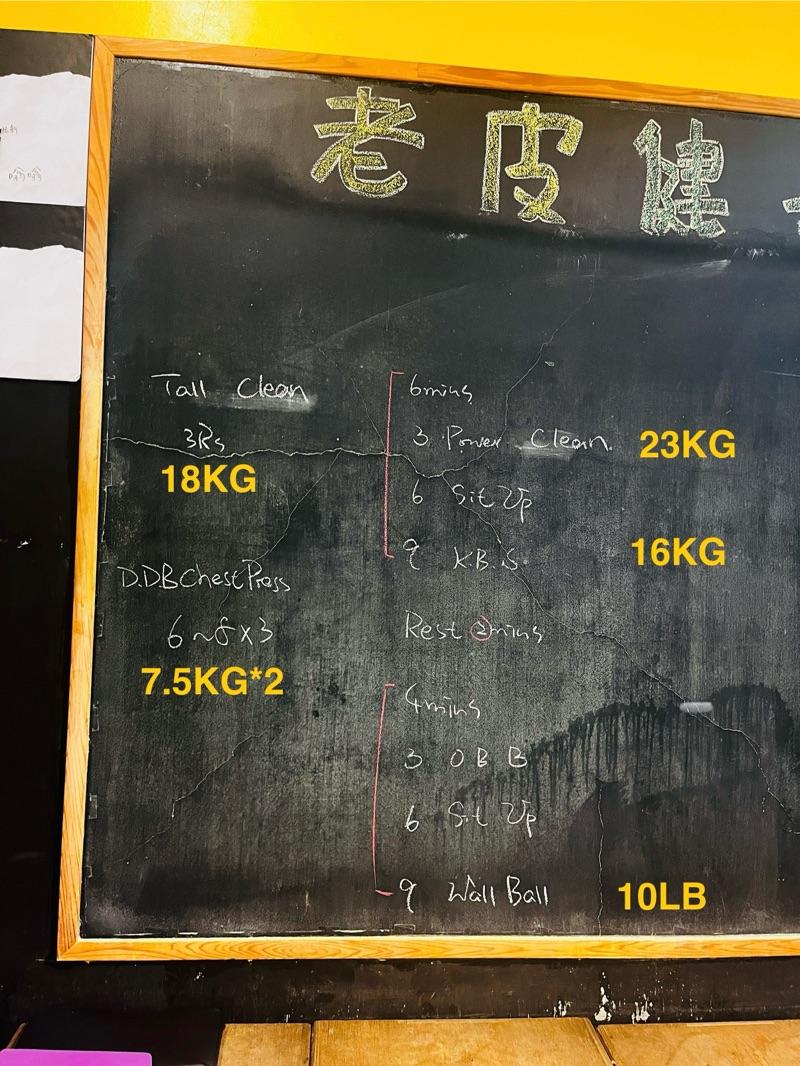 老皮健
Tall Clean
3Rs
18KG
D.DB Chest Press
6~8x3
7.5KG*2
6mins
3 Power Clean 23KG
6 Sit Up
9 K.B.S 16KG
Rest 2mins
4mins
3 O B B
6 Sit Up
9 Wall Ball 10LB